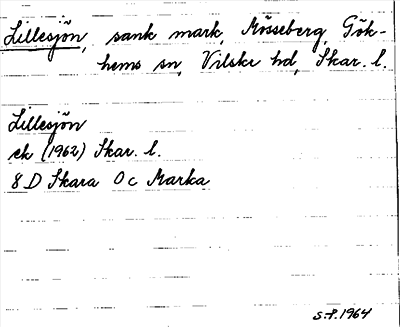 Lillesjön, sank mark, Mösseberg, Gök-
hems sn, Vilske hd, Skar. l.
Lillesjön
ek (1962) Skar. l.
8 D Skara 0 c Marka
S.P. 1964